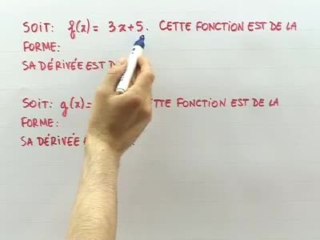 SOIT: f(x) = 3x+5. CETTE FONCTION EST DE LA
FORME:
SA DÉRIVÉE EST
SOIT: g(x)= FONCTION EST DE LA
FORME:
SA DÉRIVÉE